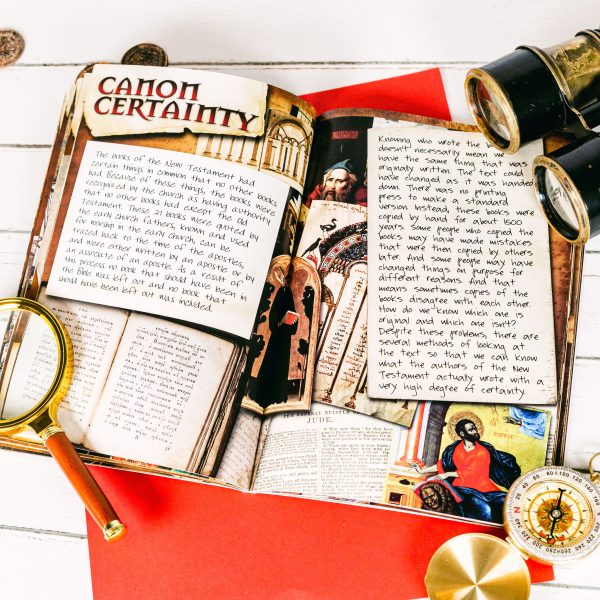 CANON
CERTAINTY
The books of the New Testament had
certain things in common that no other books
had. Because of these things, the books were
recognized by the church as having authority
that no other books had except the Old
Testament. These 27 books were quoted by
the early church fathers, known and used
for worship in the early church, can be
traced back to the time of the apostles,
and were either written by an apostle or by
an associate of an apostle. As a result of
this process no book that should have been in
the Bible was left out and no book that
should have been left out was included.
Knowing who wrote the
doesn't necessarily mean we
have the same thing that was
originally written. The text could
have changed as it was handed
down. There was no printing
press to make a standard
version. Instead, these books were
copied by hand for about 1500
years. Some people who copied the
books may have made mistakes
that were then copied by others
later. And some people may have
changed things on purpose for
different reasons. And that
means sometimes copies of the
books disagree with each other.
How do we know which one is
original and which one isn't?
Despite these problems, there are
several methods of looking at
the text so that we can know
what the authors of the New
Testament actually wrote with a
very high degree of certainty.
THE GENERAL EPISTLE OF
JUDE.